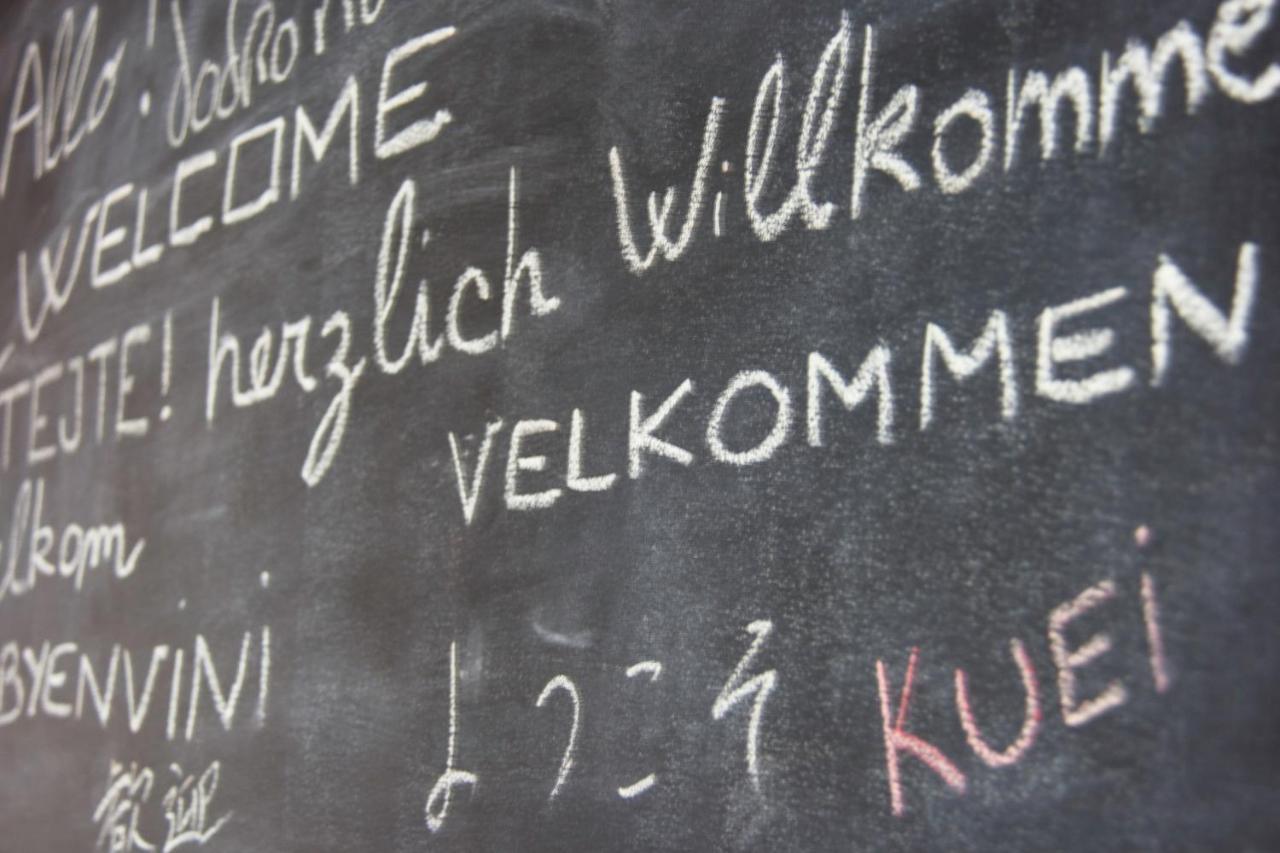 Allo!
WELCOME
herzlich Willkomme
TEJTE!
VELKOMMEN
lkom
BYENVINI
ようこそ KUEi
歡迎